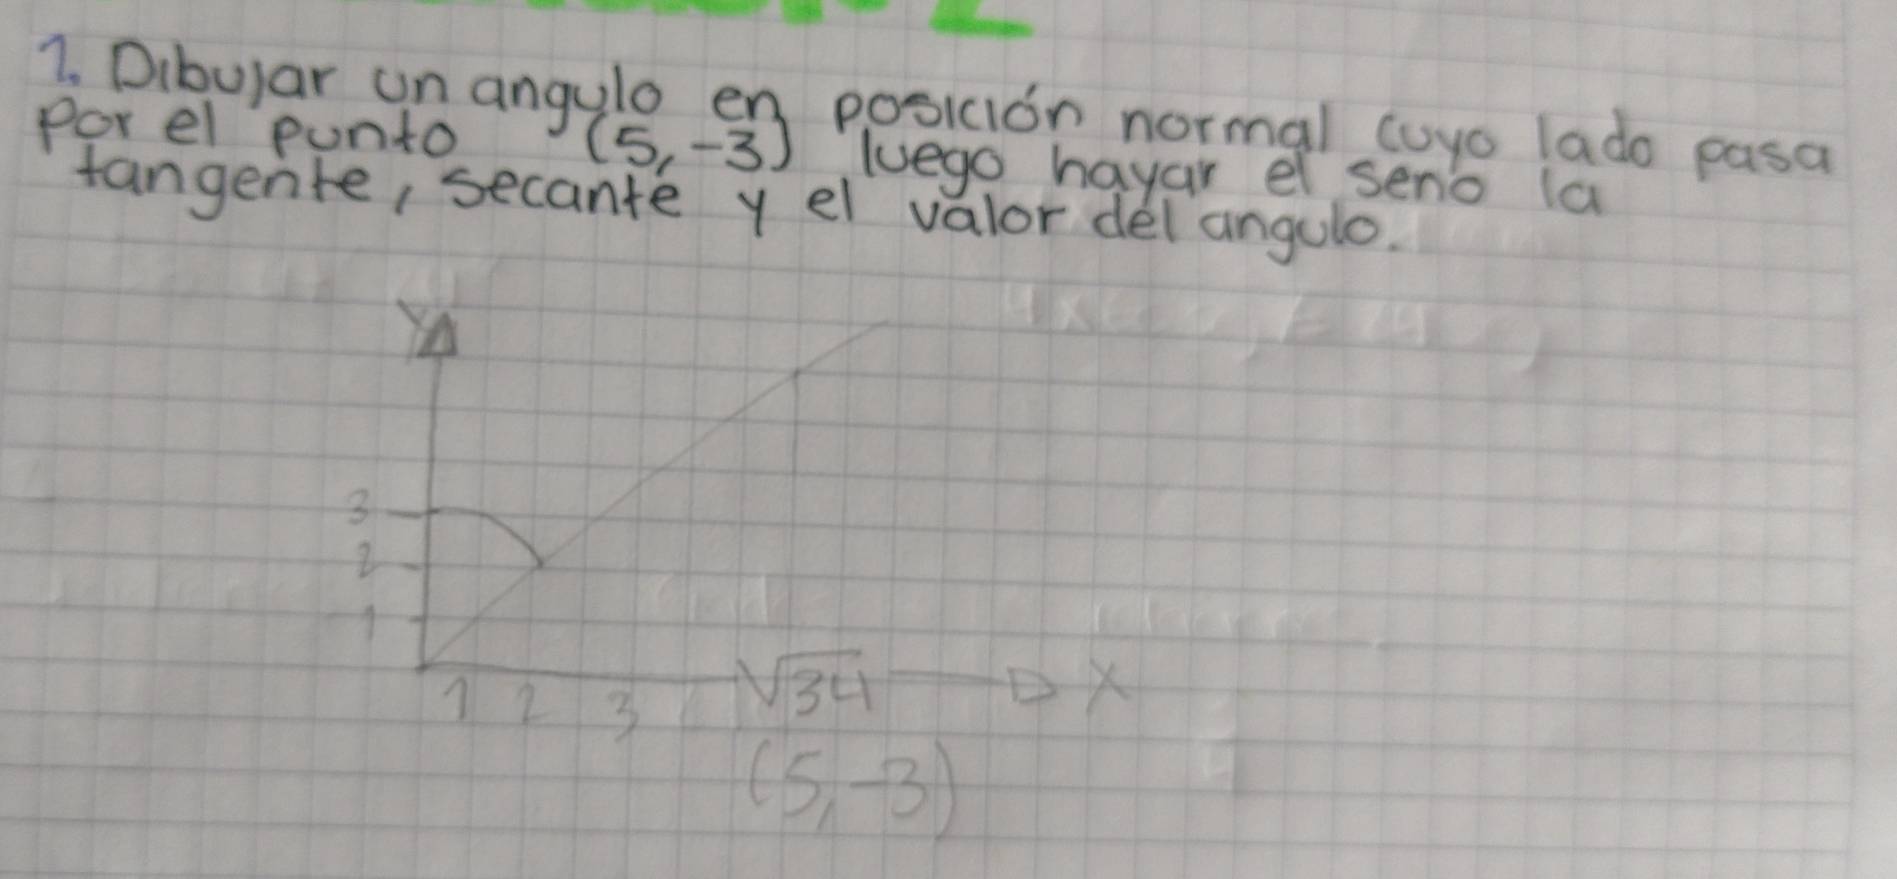 1. Dibujar un angulo en posición normal cuyo lado pasa
por el punto (5,-3) luego hayar el seno la
tangente, secante y el valor del angulo.
Y
3
2
1
1 2 3 √34 X
(5,-3)